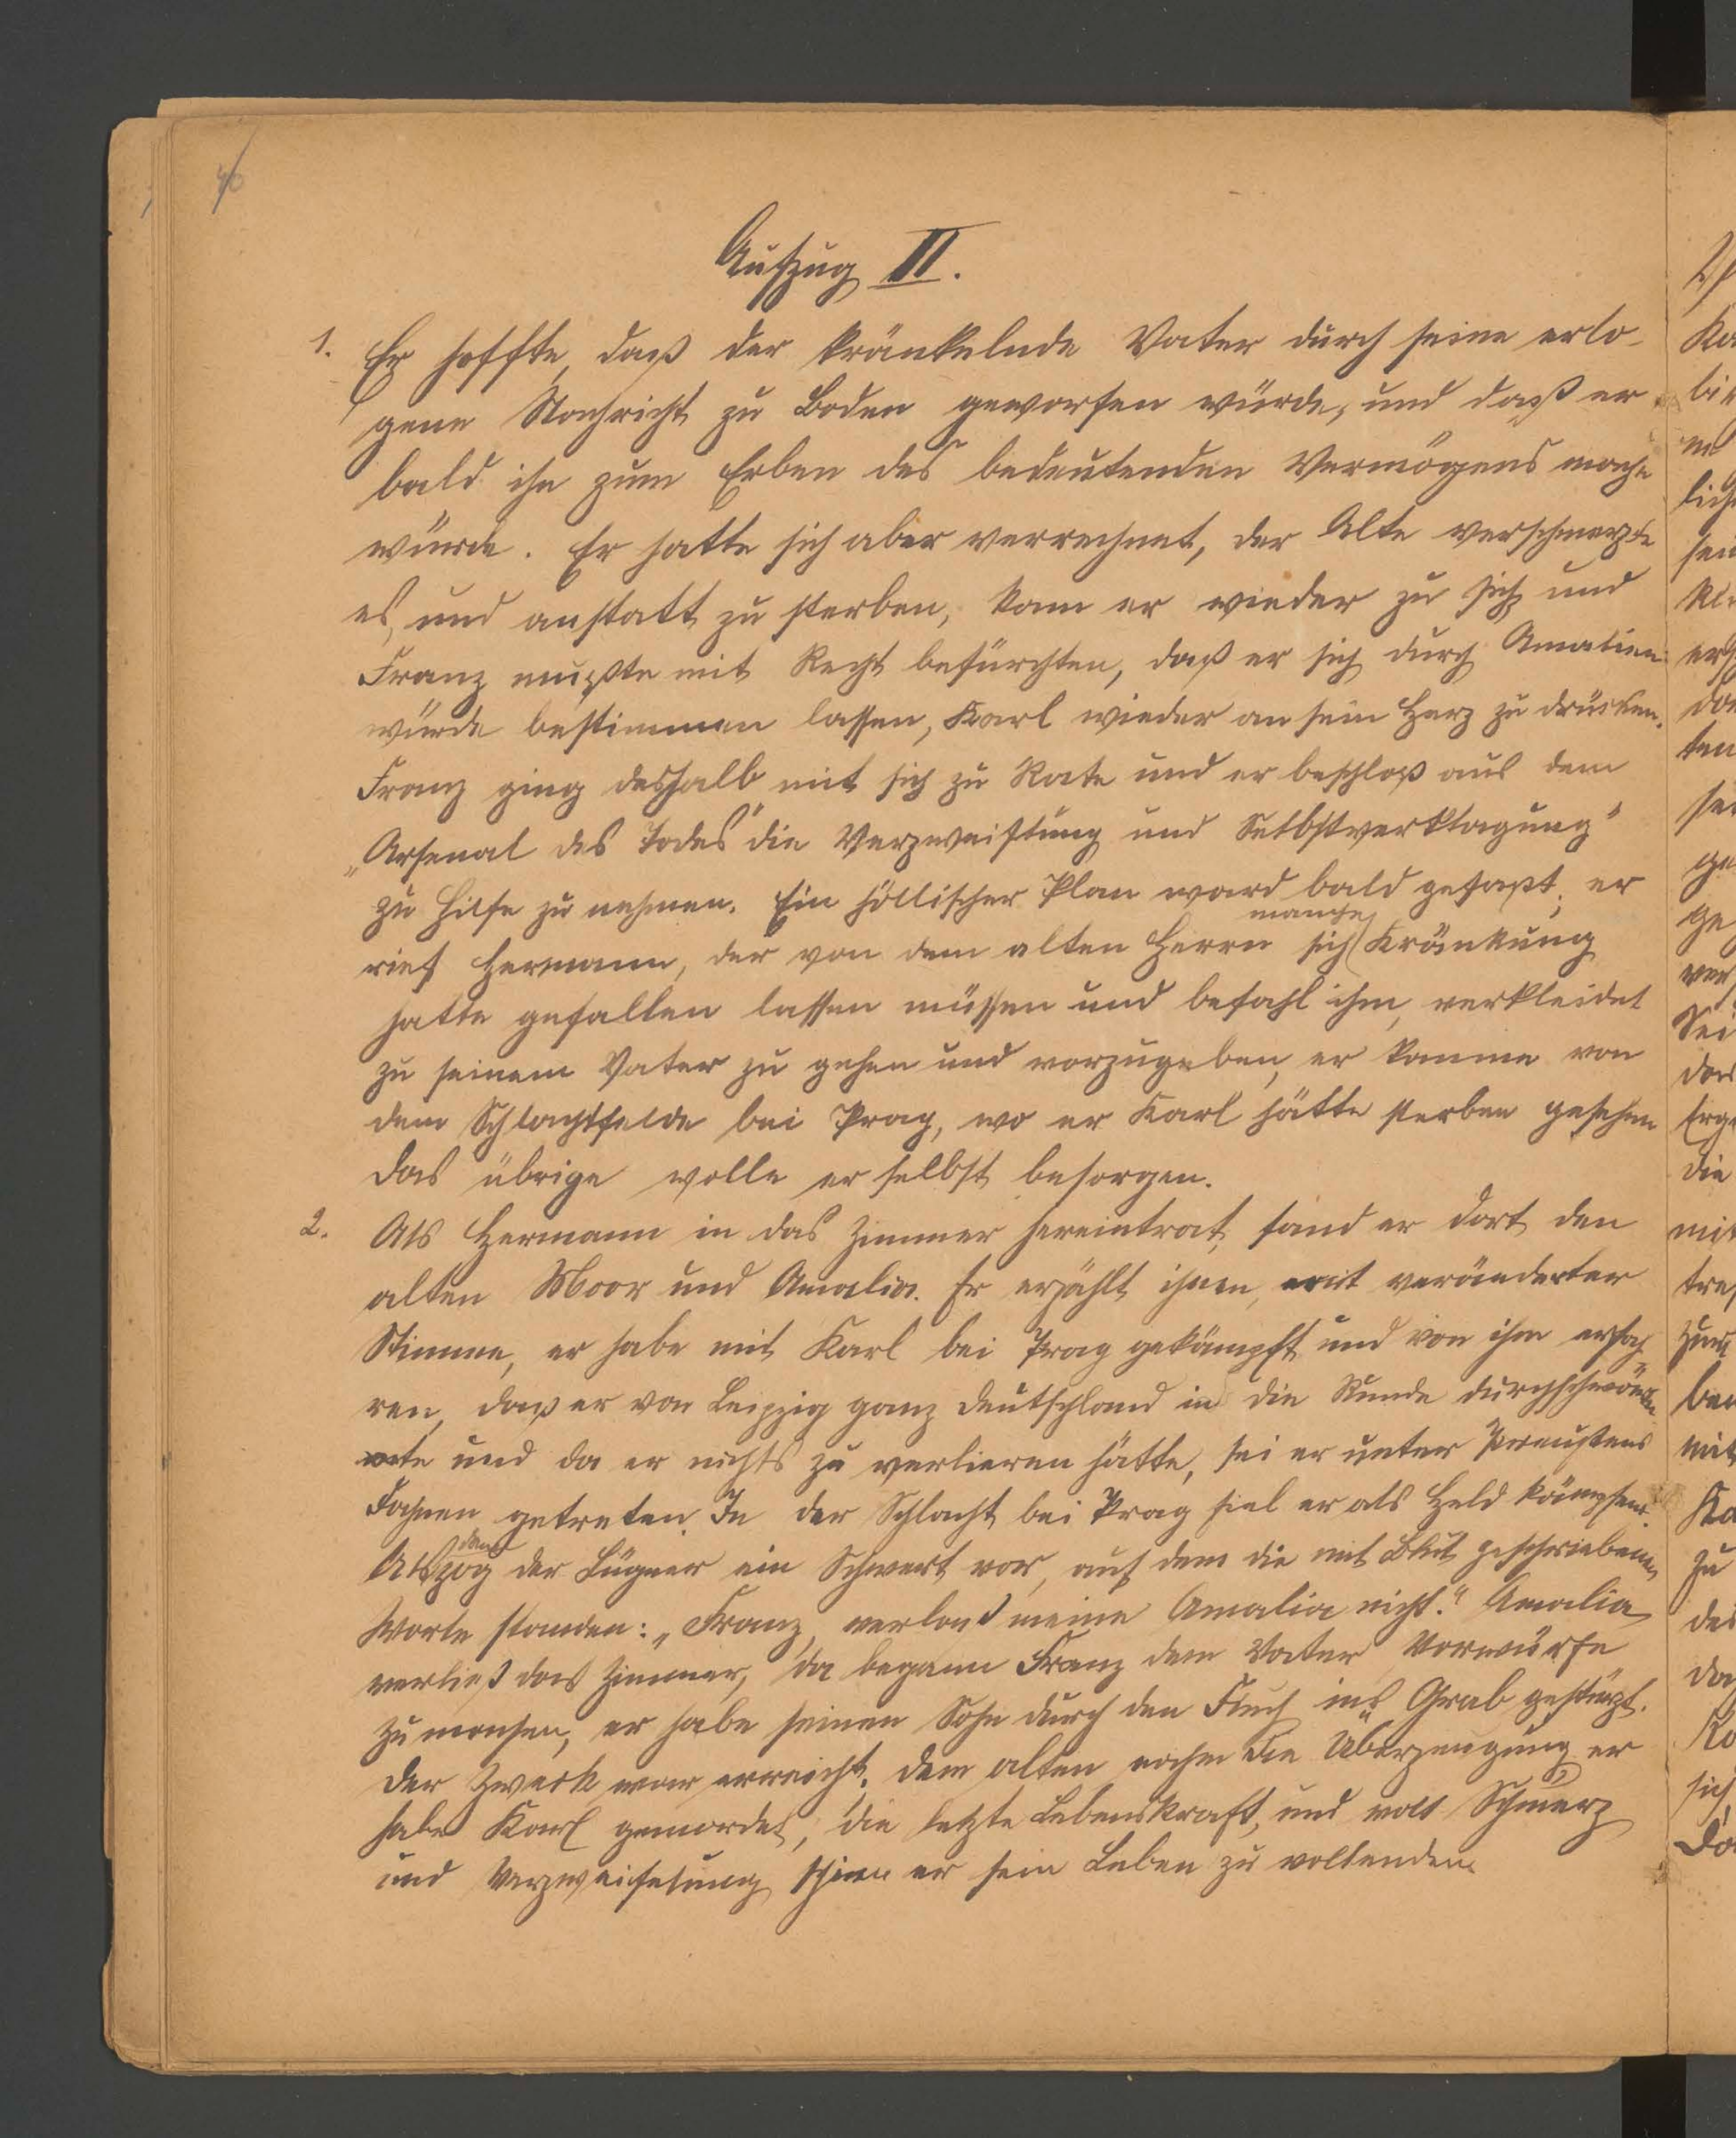 46
Aufzug II.
1. Er hoffte, daß der kränkelnde Vater durch seine erlo-
gene Nachricht zu Boden geworfen würde, und daß er
bald ihn zum Erben des bedeutenden Vermögens mache
würde. Er hatte sich aber verrechnet, der Alte verschmerzte
es, und anstatt zu sterben, kam er wieder zu sich und
Franz mußte mit Recht befürchten, daß er sich durch Amalien
würde bestimmen lassen, Karl wieder an sein Herz zu drücken.
Franz ging deshalb mit sich zu Rate und er beschloß aus dem
„Arsenal des Todes" die Verzweiflung und Selbstverklagung"
zu Hilfe zu nehmen. Ein höllischer Plan ward bald gefaßt; er
rief Hermann, der von dem alten Herrn sich manche Kränkung
hatte gefallen lassen müssen und befahl ihm, verkleidet
zu seinem Vater zu gehen und vorzugeben, er komme von
dem Schlachtfelde bei Prag, wo er Karl hätte sterben gesehen
das übrige wolle er selbst besorgen.
2. Als Hermann in das Zimmer hereintrat, fand er dort den
alten Moor und Amalia. Er erzählt ihnen, mit veränderter
Stimme, er habe mit Karl bei Prag gekämpft und von ihm erfah-
ren, daß er von Leipzig ganz Deutschland in die Runde durchschwärm
te und da er nichts zu verlieren hätte, sei er unter Preußens
Fahnen getreten. In der Schlacht bei Prag fiel er als Held kämpfend.
Als dann zog der Lügner ein Schwert vor, auf dem die mit Blut geschriebenen
Worte standen: „Franz, verlaß meine Amalia nicht." Amalia
verließ das Zimmer, da begann Franz dem Vater Vorwürfe
zu machen, er habe seinen Sohn durch den Fluch ins Grab gestürzt.
Der Zweck war erreicht. Dem alten nahm die Überzeugung er
habe Karl gemordet, die letzte Lebenskraft, und voll Schmerz
und Verzweifelung schien er sein Leben zu vollenden.